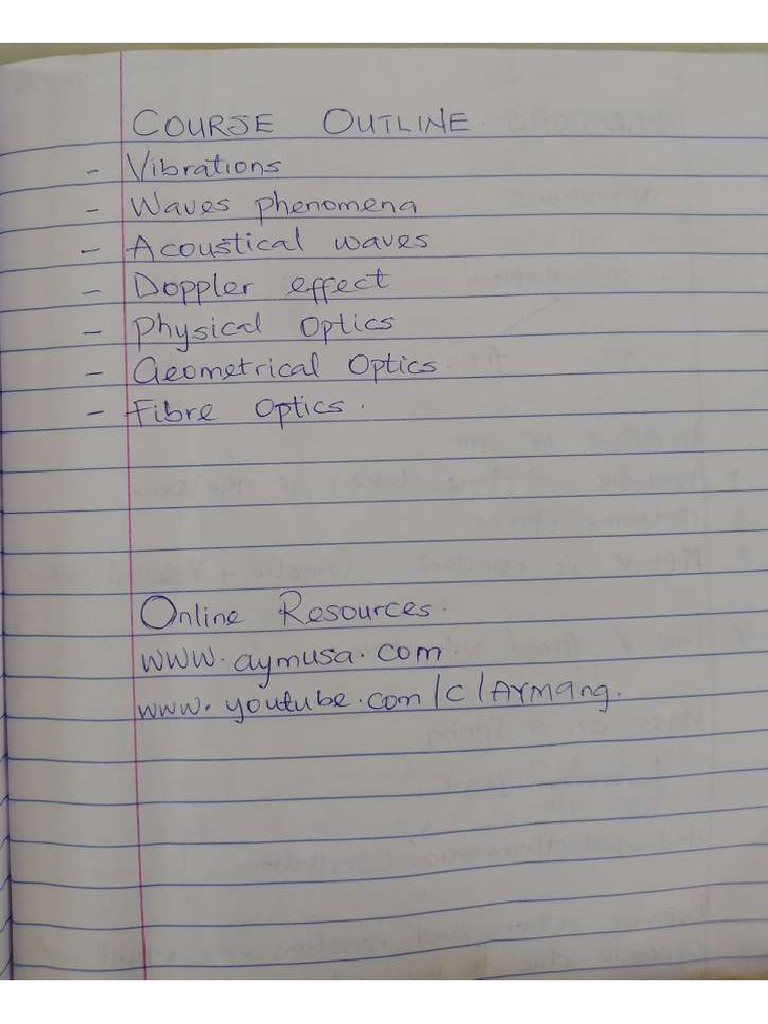 COURSE OUTLINE
- Vibrations
- Waves phenomena
- Acoustical waves
- Doppler effect
- Physical Optics
- Geometrical Optics.
- Fibre Optics.
Online Resources.
www.aymusa.com
www.youtube.com/c/AYMang.